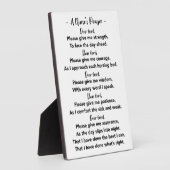 - A Nurse's Prayer -
Dear Lord,
Please give me strength,
To face the day ahead.
Dear Lord,
Please give me courage,
As I approach each hurting bed.
Dear Lord,
Please give me wisdom,
With every word I speak.
Dear Lord,
Please give me patience,
As I comfort the sick and weak.
Dear Lord,
Please give me assurance,
As the day slips into night,
That I have done the best I can,
That I have done what's right.